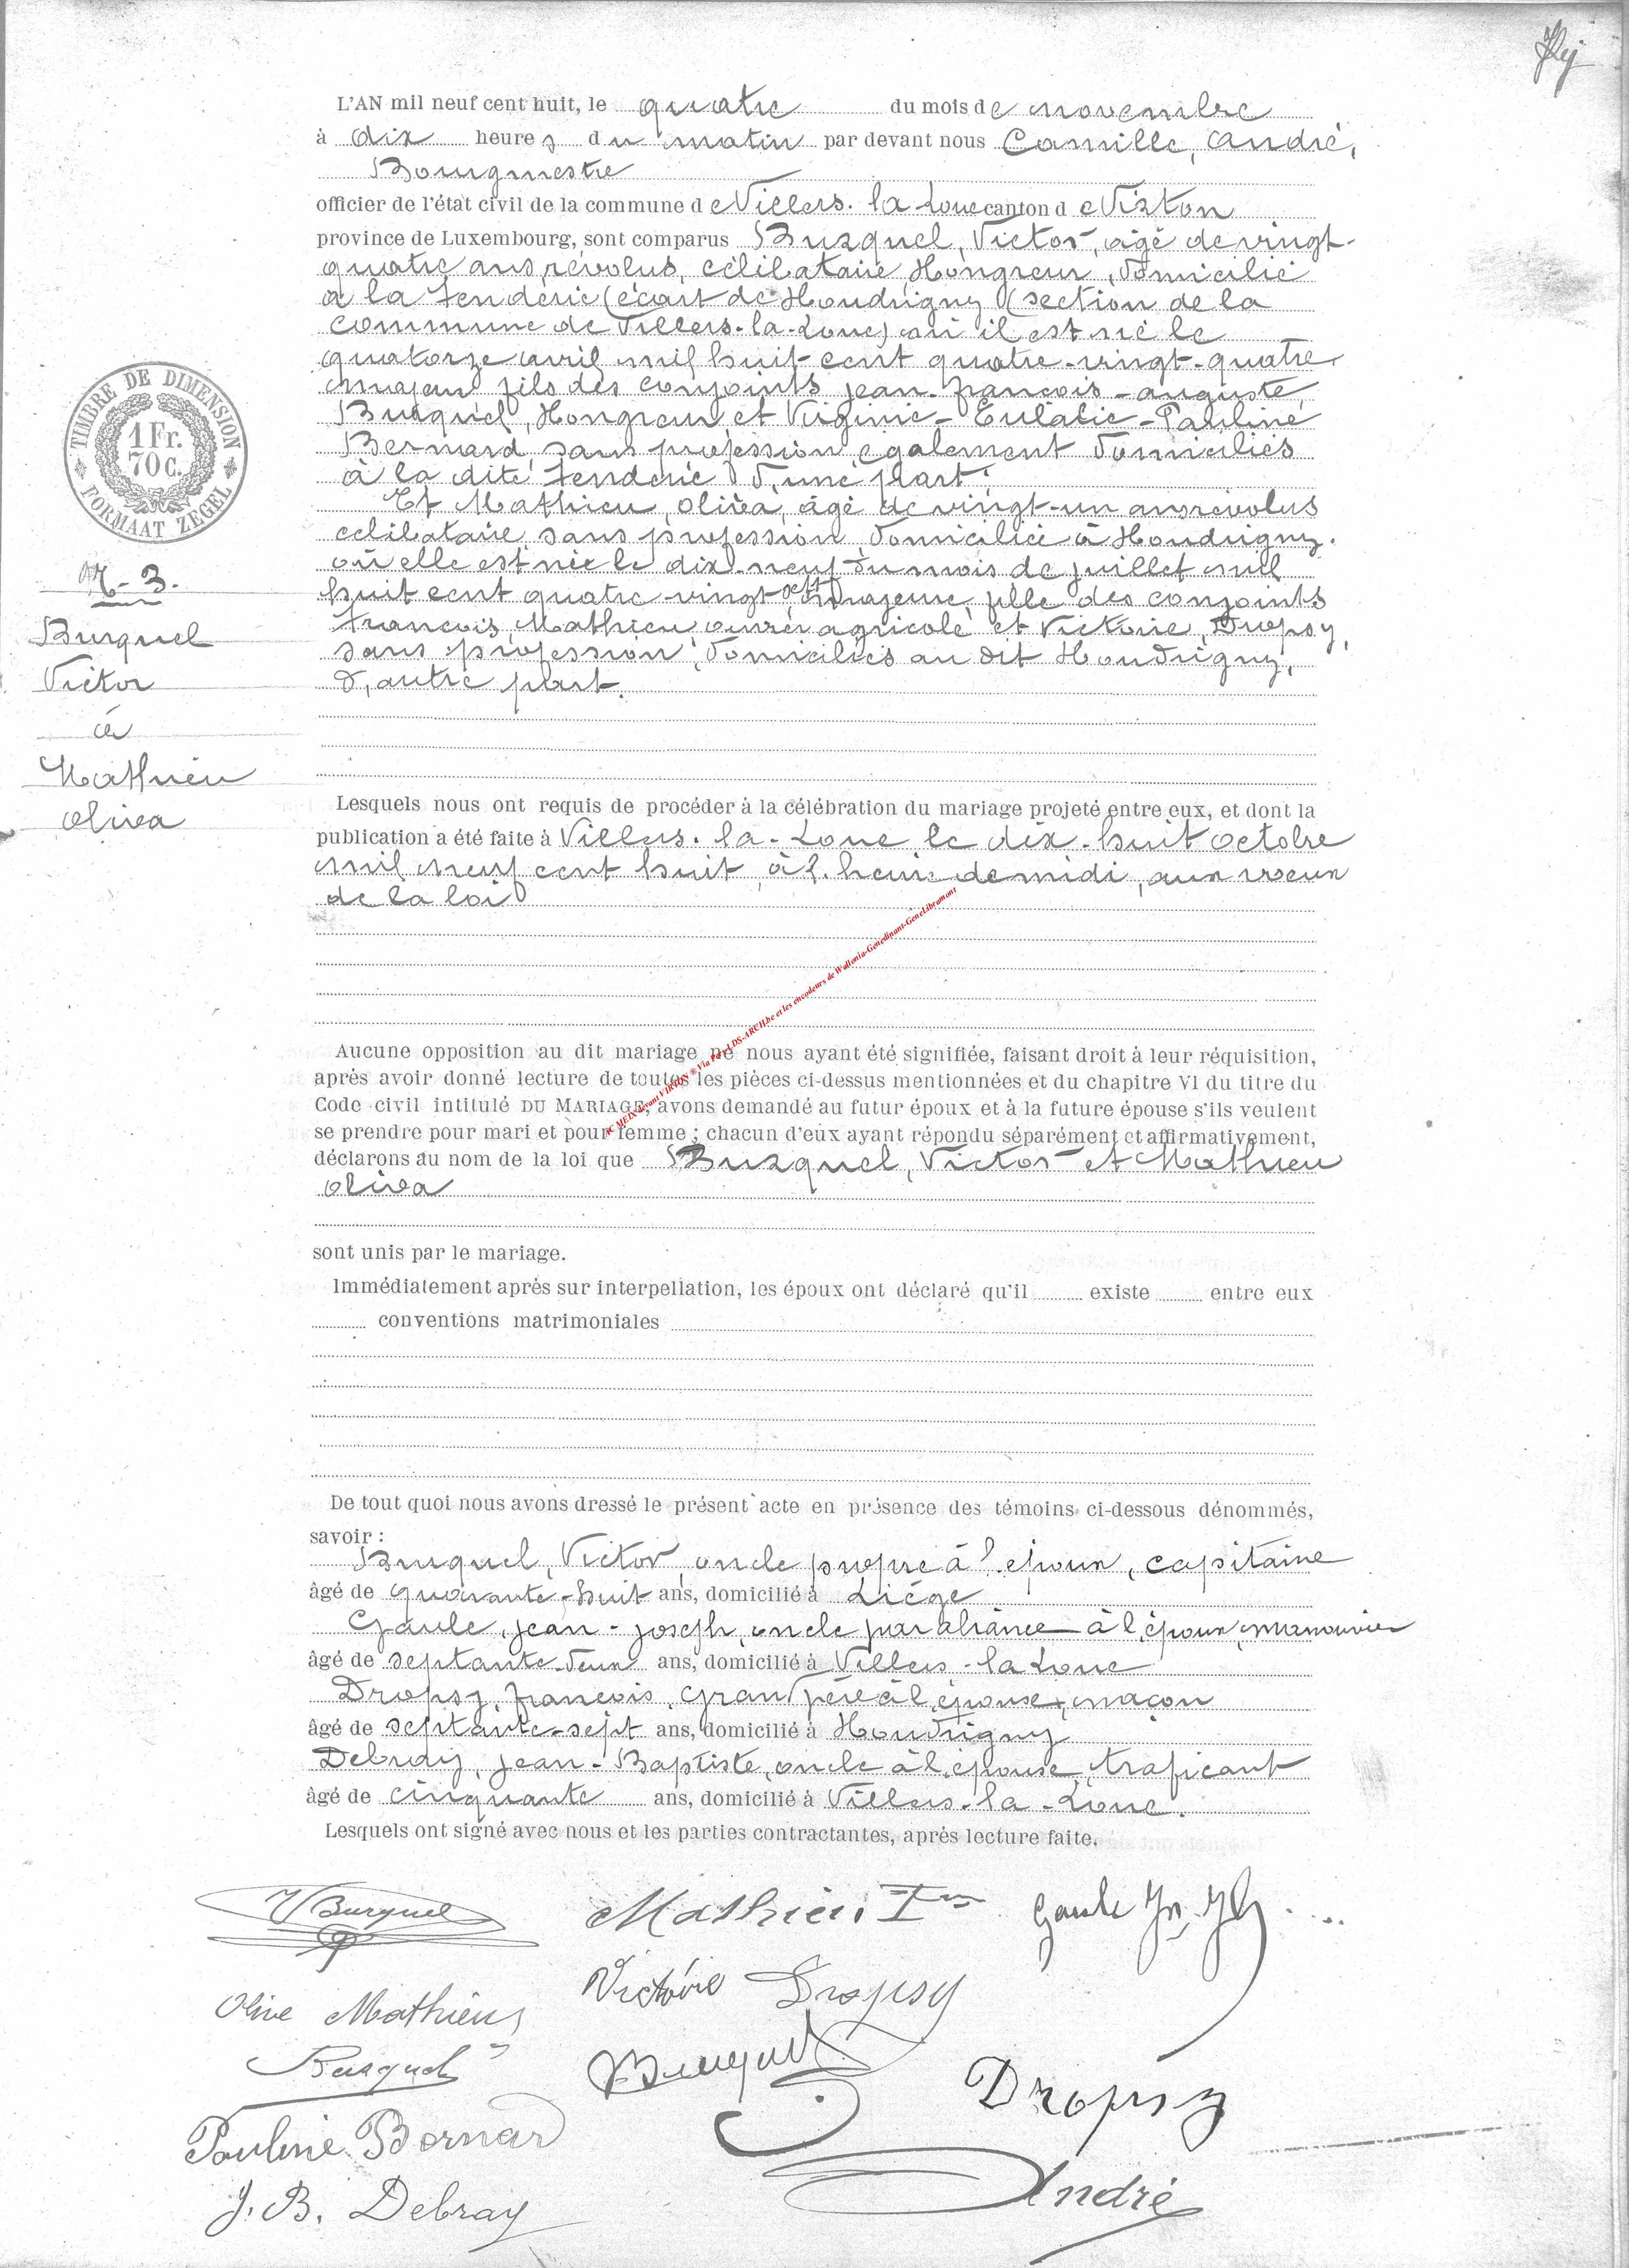 L'AN mil neuf cent huit, le quatre du mois de novembre
à dix heures du matin par devant nous Camille, André,
Bourgmestre
officier de l'état civil de la commune de Villers-la-Loue canton de Virton
province de Luxembourg, sont comparus Burquel, Victor, âgé de vingt-
quatre ans révolus, célibataire, Hongreur, domicilié
à la tenderie (écart de Houdrigny (section de la
commune de Villers-la-Loue) où il est né le
quatorze avril mil huit cent quatre-vingt-quatre,
majeur fils des conjoints jean-françois-auguste,
Burquel, Hongreur et Virginie-Eulalie-Pauline
Bernard sans profession, également domiciliés
à la dite tenderie d'une part.
Et Mathieu, oliva, âgé de vingt-un ans révolus
célibataire, sans profession domiciliée à Houdrigny.
où elle est née le dix-neuf du mois de juillet mil
huit cent quatre-vingt-sept majeure, fille des conjoints
françois, Mathieu, ouvrier agricole et Victoire, Dropsy,
sans profession, domiciliés au dit Houdrigny,
d'autre part.
TIMBRE DE DIMENSION
1 Fr.
70 C.
FORMAAT ZEGEL
N-3.
Burquel
Victor
à
Mathieu
oliva
Lesquels nous ont requis de procéder à la célébration du mariage projeté entre eux, et dont la
publication a été faite à Villers-la-Loue le dix-huit octobre
mil neuf cent huit, à l'heure de midi, aux voeux
de la loi
Aucune opposition au dit mariage ne nous ayant été signifiée, faisant droit à leur réquisition,
après avoir donné lecture de toutes les pièces ci-dessus mentionnées et du chapitre VI du titre du
Code civil intitulé DU MARIAGE, avons demandé au futur époux et à la future épouse s'ils veulent
se prendre pour mari et pour femme ; chacun d'eux ayant répondu séparément et affirmativement,
déclarons au nom de la loi que Burquel, Victor et Mathieu
oliva
sont unis par le mariage.
Immédiatement après sur interpellation, les époux ont déclaré qu'il existe entre eux
conventions matrimoniales
De tout quoi nous avons dressé le présent acte en présence des témoins ci-dessous dénommés,
savoir :
Burquel, Victor, oncle propre à l'époux, capitaine
âgé de quarante-huit ans, domicilié à Liége
Gaule, jean-joseph, oncle par aliance à l'époux, manouvrier
âgé de septante-deux ans, domicilié à Villers-la Loue
Dropsy, françois, grand père à l'épouse, maçon
âgé de septante-sept ans, domicilié à Houdrigny
Debray, jean-Baptiste, oncle à l'épouse, traficant
âgé de cinquante ans, domicilié à Villers-la-Loue.
Lesquels ont signé avec nous et les parties contractantes, après lecture faite.
VBurquel Mathieu Gaule Jn Jh
Olive Mathieu Victoire Dropsy
Burquel Burquel Dropsy
Pauline Bernard
J. B. Debray André